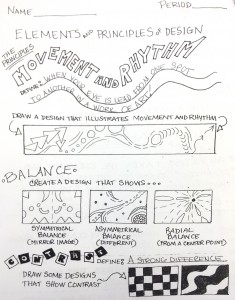 NAME PERIOD
ELEMENTS AND PRINCIPLES OF DESIGN
THE PRINCIPLES
MOVEMENT AND RHYTHM
DEFINE: WHEN YOUR EYE IS LEAD FROM ONE SPOT
TO ANOTHER IN A WORK OF ART
DRAW A DESIGN THAT ILLUSTRATES MOVEMENT AND RHYTHM
BALANCE
CREATE A DESIGN THAT SHOWS...
SYMMETRICAL BALANCE (MIRROR IMAGE)
ASYMMETRICAL BALANCE (DIFFERENT)
RADIAL BALANCE (FROM A CENTER POINT)
CONTRAST DEFINE: A STRONG DIFFERENCE
DRAW SOME DESIGNS
THAT SHOW CONTRAST